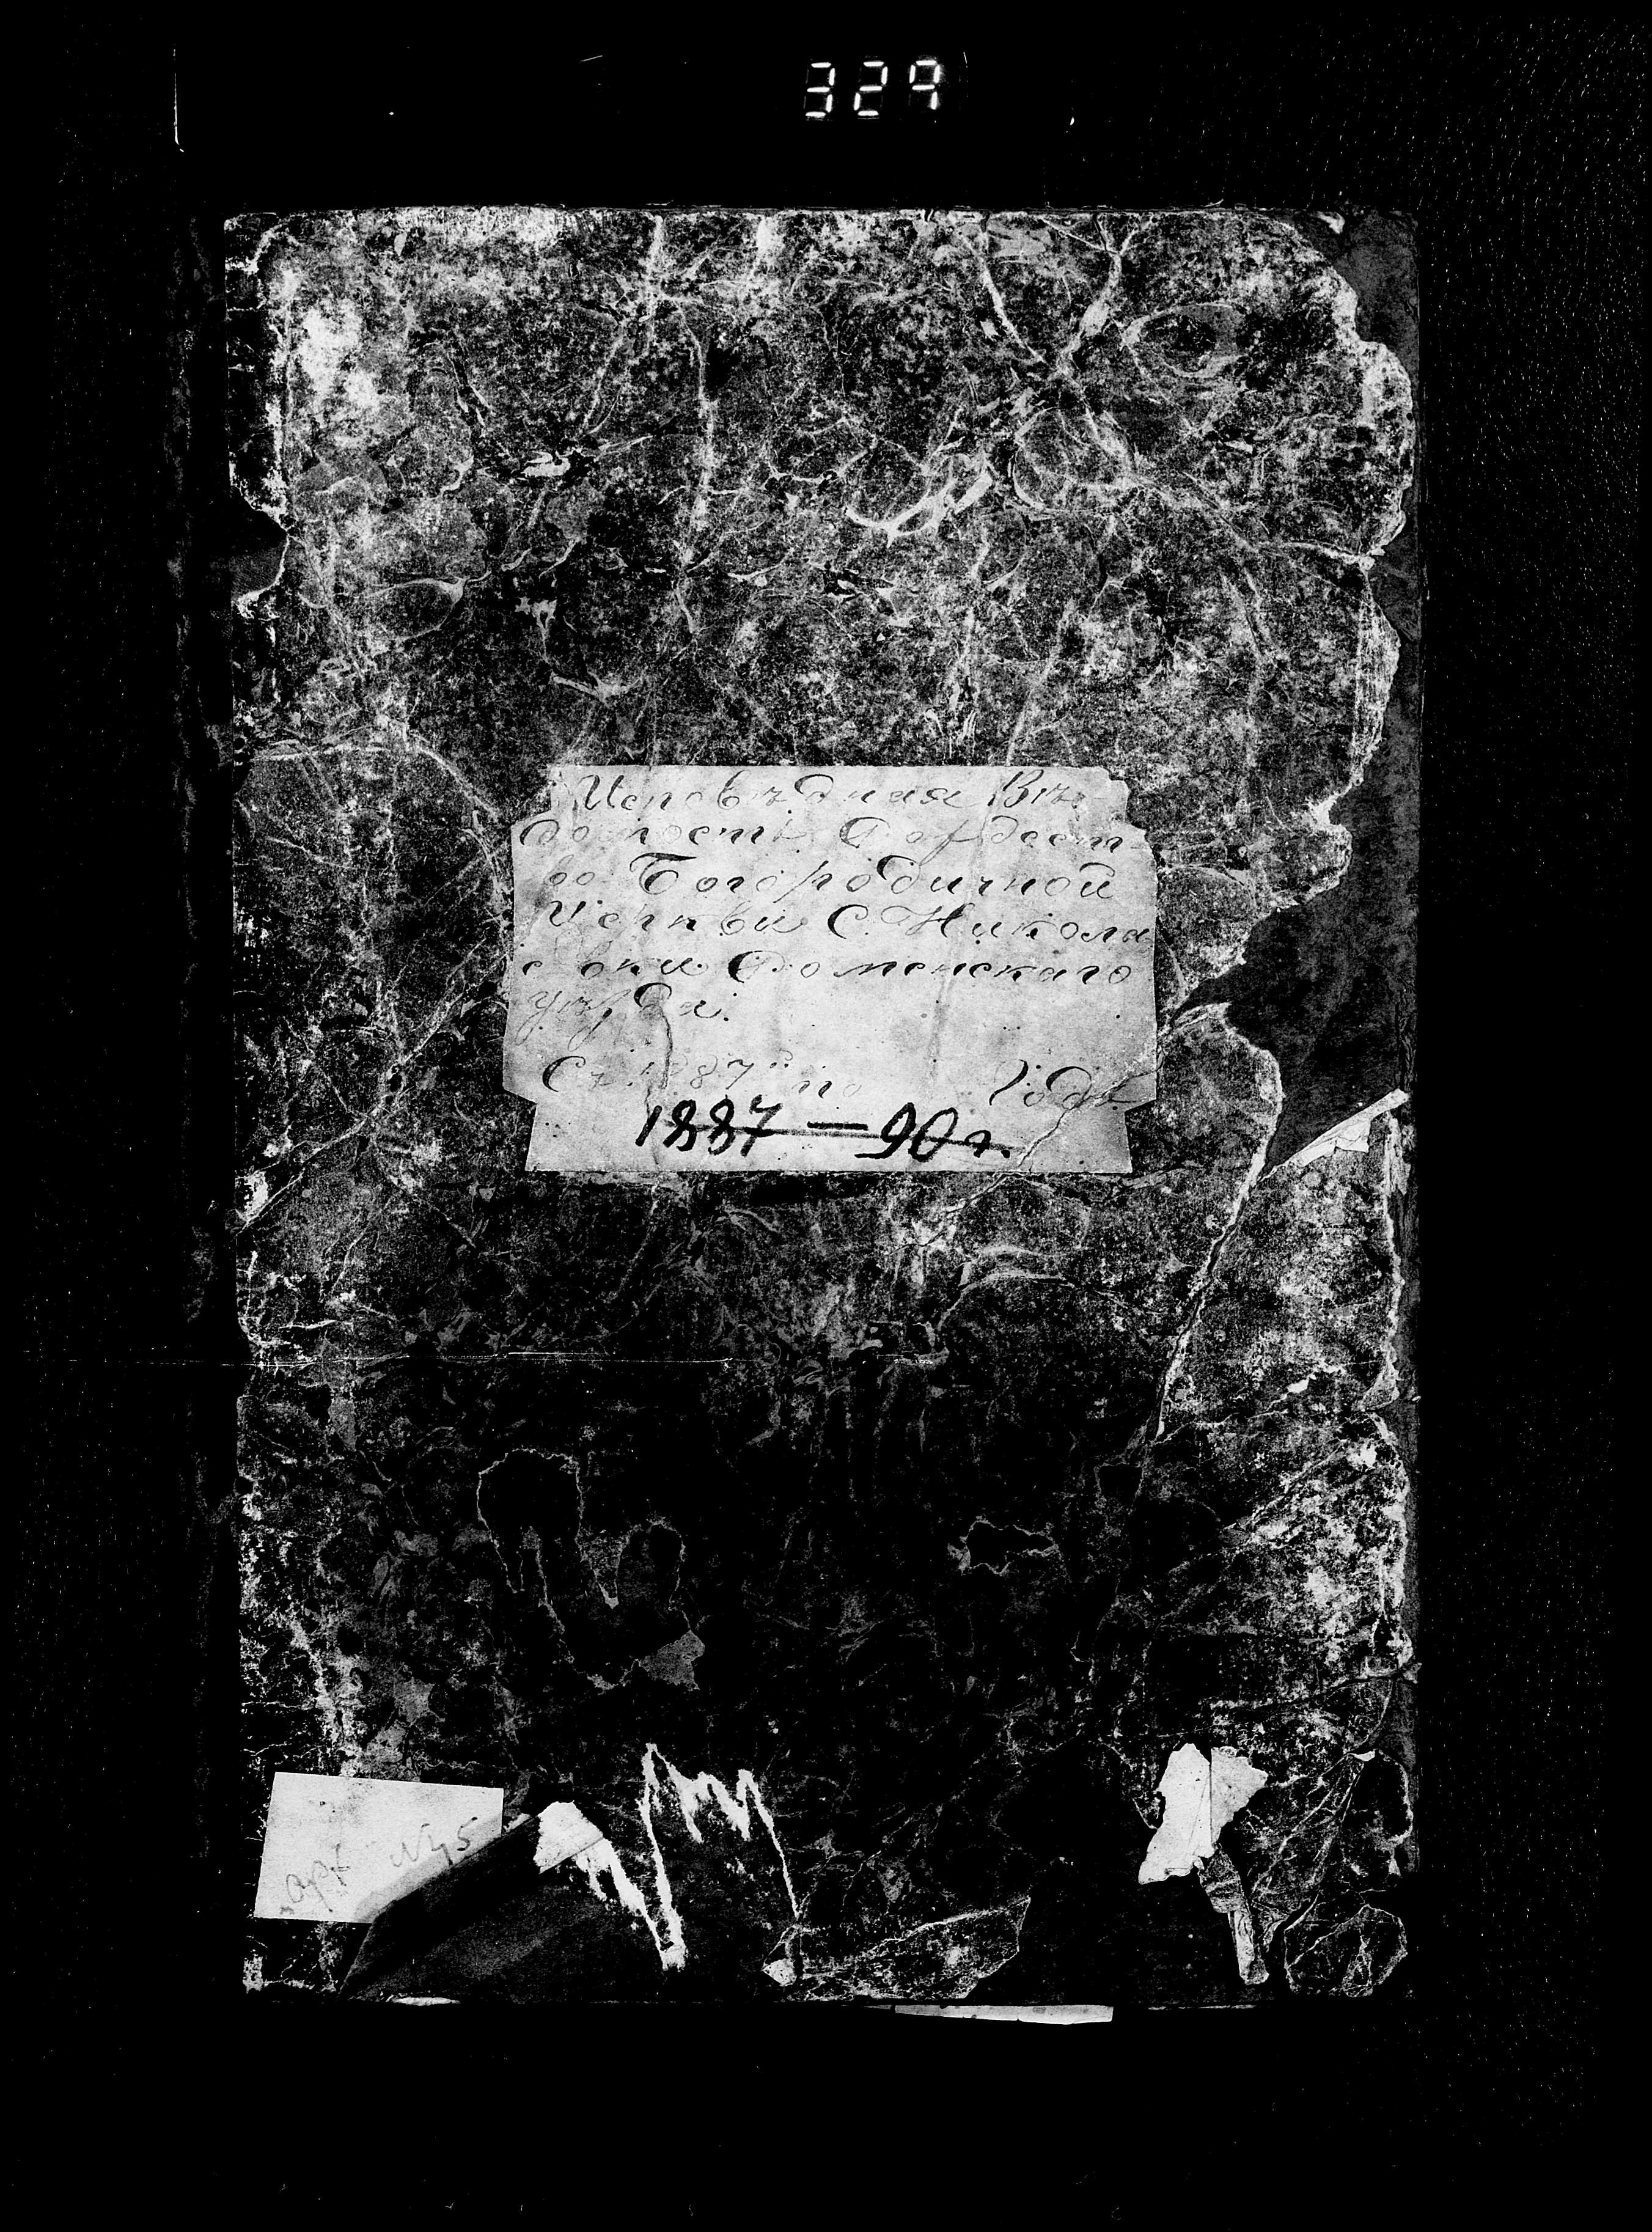 329
Исповѣдная Вѣ-
домость Рождест
во Богородичной
Церкви С. Никола
евки Роменскаго
уѣзда.
Съ 1887 по Года
1887 – 90 г.
арх N 45